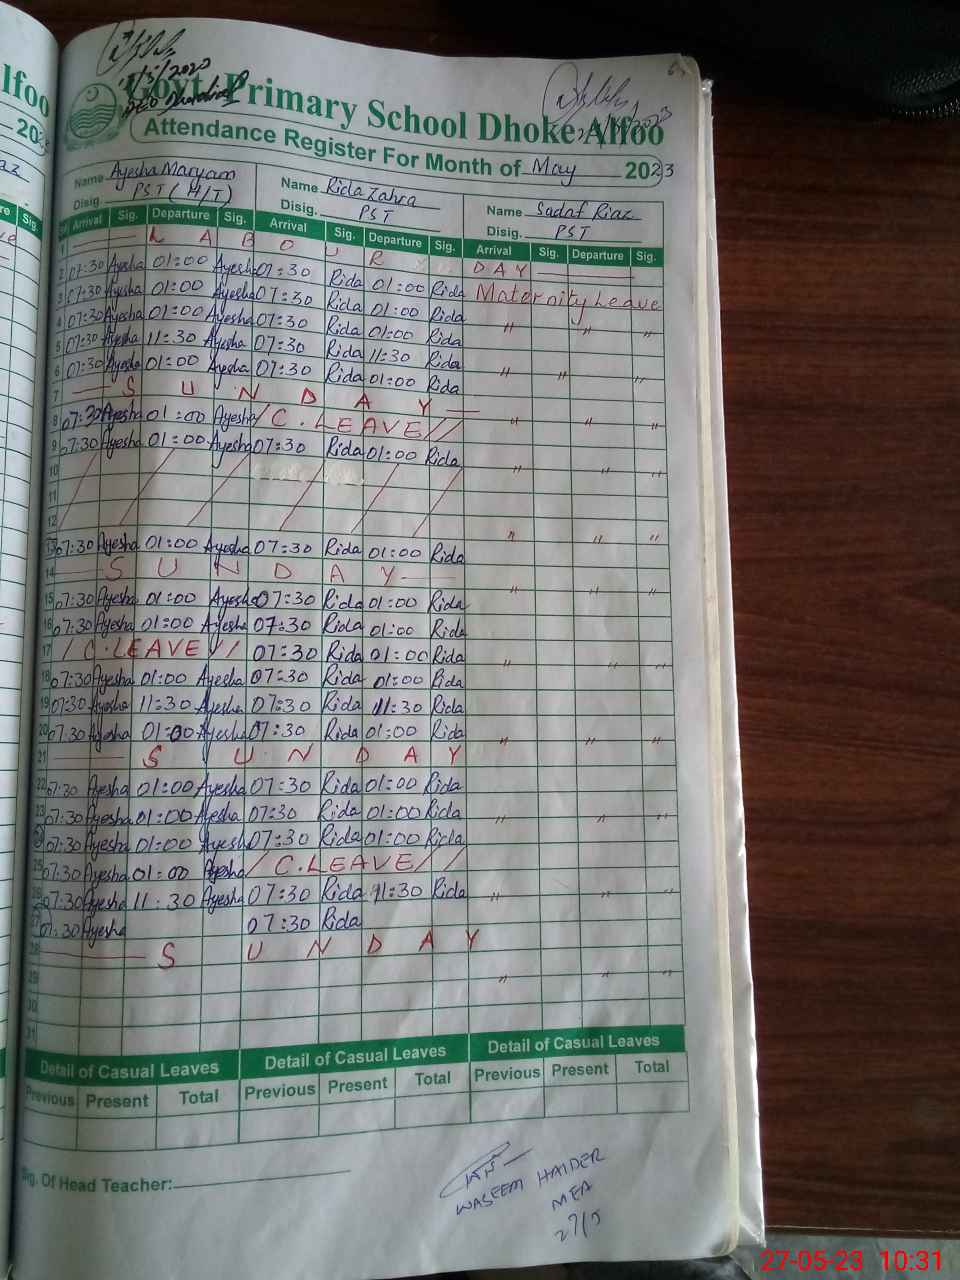 Govt. Primary School Dhoke Alfoo
Attendance Register For Month of May 2023
Name Ayesha Maryam Name Rida Zahra Name Sadaf Riaz
Disig. PST (H/T) Disig. PST Disig. PST
Arrival Sig. Departure Sig. Arrival Sig. Departure Sig. Arrival Sig. Departure Sig.
1 LABOUR DAY
2 07:30 Ayesha 01:00 Ayesha 07:30 Rida 01:00 Rida Maternity Leave
3 07:30 Ayesha 01:00 Ayesha 07:30 Rida 01:00 Rida
4 07:30 Ayesha 01:00 Ayesha 07:30 Rida 01:00 Rida " " "
5 07:30 Ayesha 11:30 Ayesha 07:30 Rida 11:30 Rida
6 07:30 Ayesha 01:00 Ayesha 07:30 Rida 01:00 Rida " " "
7 SUNDAY
8 07:30 Ayesha 01:00 Ayesha / C.LEAVE // " " "
9 07:30 Ayesha 01:00 Ayesha 07:30 Rida 01:00 Rida
10 " " "
11
12 " " "
13 07:30 Ayesha 01:00 Ayesha 07:30 Rida 01:00 Rida
14 SUNDAY " " "
15 07:30 Ayesha 01:00 Ayesha 07:30 Rida 01:00 Rida
16 07:30 Ayesha 01:00 Ayesha 07:30 Rida 01:00 Rida
17 / C.LEAVE // 07:30 Rida 01:00 Rida " " "
18 07:30 Ayesha 01:00 Ayesha 07:30 Rida 01:00 Rida
19 07:30 Ayesha 11:30 Ayesha 07:30 Rida 11:30 Rida
20 07:30 Ayesha 01:00 Ayesha 07:30 Rida 01:00 Rida " " "
21 SUNDAY
22 07:30 Ayesha 01:00 Ayesha 07:30 Rida 01:00 Rida
23 07:30 Ayesha 01:00 Ayesha 07:30 Rida 01:00 Rida " " "
07:30 Ayesha 01:00 Ayesha 07:30 Rida 01:00 Rida
25 07:30 Ayesha 01:00 Ayesha / C.LEAVE //
26 07:30 Ayesha 11:30 Ayesha 07:30 Rida 11:30 Rida " " "
27 07:30 Ayesha 07:30 Rida
28 SUNDAY
29 " " "
30
31
Detail of Casual Leaves Detail of Casual Leaves Detail of Casual Leaves
Previous Present Total Previous Present Total Previous Present Total
Sig. Of Head Teacher:
WASEEM HAIDER
MEA
27/5
27-05-23 10:31